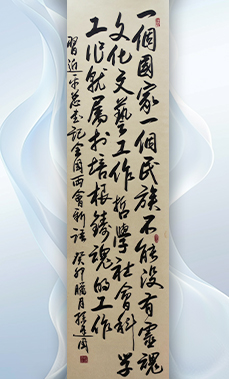 一個國家一個民族不能没有靈魂
文化文藝工作哲學社會科學
工作就屬於培根鑄魂的工作
習近平总書記全國两會新語
癸卯臘月